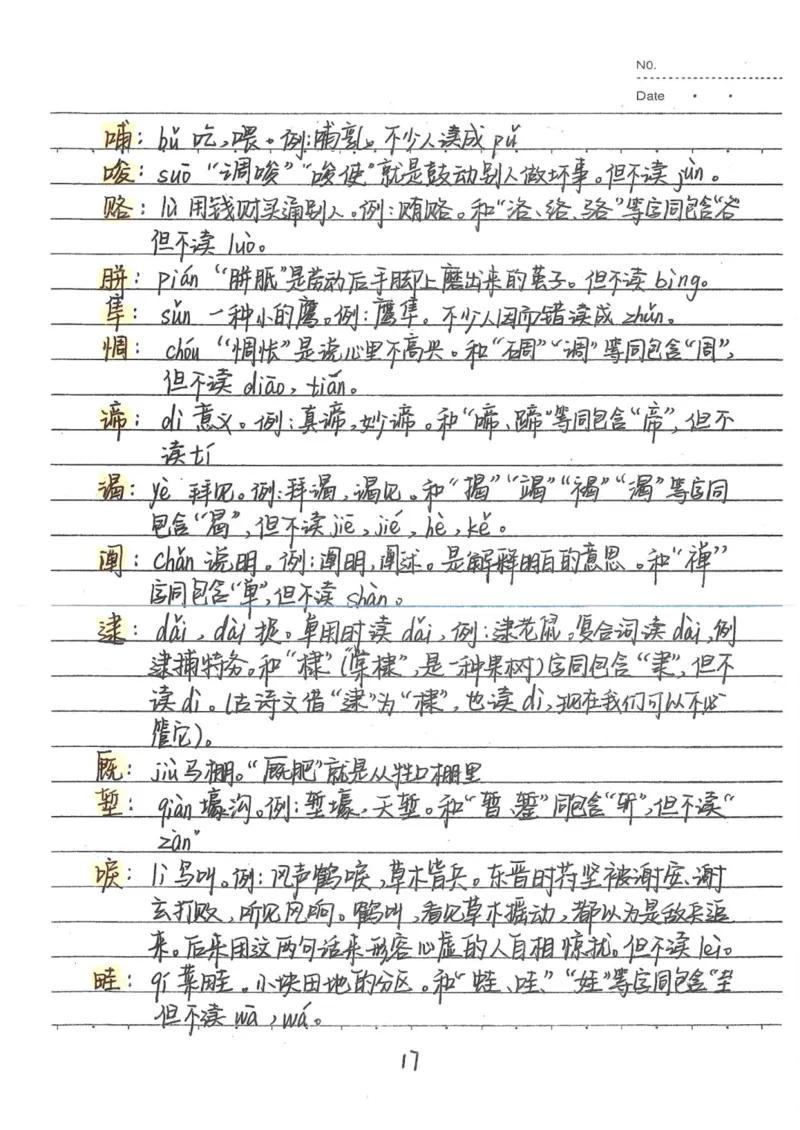 NO.
Date
哺：bǔ 吃，喂。例：哺乳。不少人读成 pǔ
唆：suō “调唆”“唆使”就是鼓动别人做坏事。但不读 jùn。
赂：lù 用钱财买通别人。例：贿赂。和“洛、络、骆”等字同包含“各”
但不读 luò。
胼：pián “胼胝”是劳动后手脚上磨出来的茧子。但不读 bìng。
隼：sǔn 一种小的鹰。例：鹰隼。不少人因而错读成 zhǔn。
惆：chóu “惆怅”是说心里不高兴。和“碉”“调”等同包含“周”，
但不读 diāo，tiān。
谛：dì 意义。例：真谛，妙谛。和“啼、蹄”等同包含“帝”，但不
读 tí
谒：yè 拜见。例：拜谒，谒见。和“揭”“竭”“褐”“渴”等字同
包含“曷”，但不读 jiē，jié，hè，kě。
阐：chǎn 说明。例：阐明，阐述。是解释明白的意思。和“禅”
字同包含“单”，但不读 shàn。
逮：dǎi，dài 捉。单用时读 dǎi，例：逮花鼠。复合词读 dài，例
逮捕特务。和“棣”（“棠棣”，是一种果树）字同包含“隶”，但不
读 dì。（古诗文借“逮”为“棣”，也读 dì，现在我们可以不必
管它）。
厩：jiù 马棚。“厩肥”就是从牲口棚里
堑：qiàn 壕沟。例：堑壕，天堑。和“暂、錾”同包含“斩”，但不读“
zàn”
唳：lì 鸟叫。例：风声鹤唳，草木皆兵。东晋时苻坚被谢安、谢
玄打败，听见风响。鹤叫，看见草木摇动，都以为是敌兵追
来。后来用这两句话来形容心虚的人自相惊扰。但不读 lèi。
畦：qí 菜畦。小块田地的分区。和“蛙、哇”、“娃”等字同包含“圭
但不读 wā，wá。
17